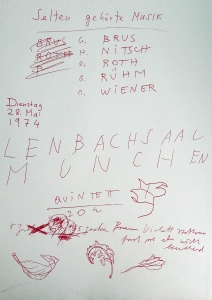 Selten gehörte Musik
BRUS G. BRUS
ROTH H. NITSCH
D. ROTH
G. RÜHM
O. WIENER
Dienstag
28. Mai
1974
LENBACHSAAL
MÜNCHEN
QUINTETT
20 h
Braun Violett